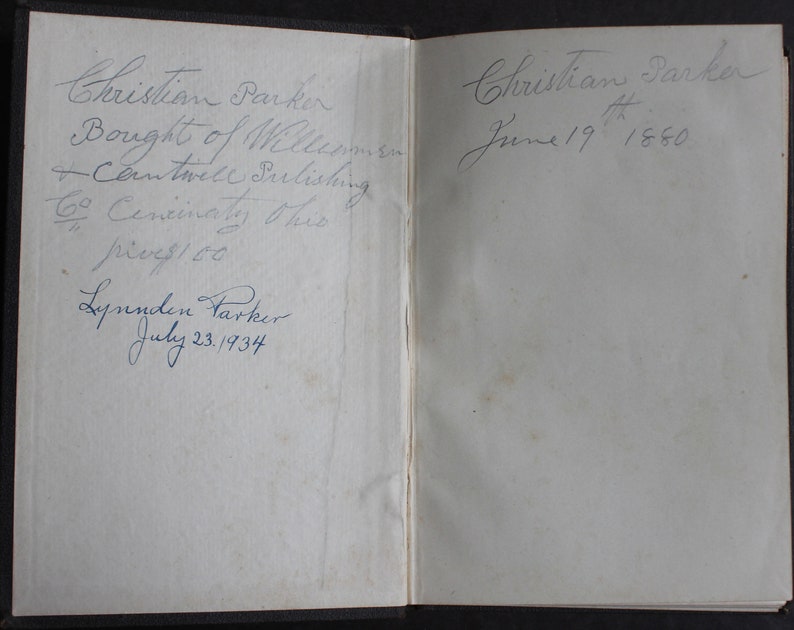 Christian Parker
Bought of Williamson
& Cantwell Publishing
Co Cincinaty Ohio
$1 00
Lynnden Parker
July 23, 1934
Christian Parker
June 19th 1880